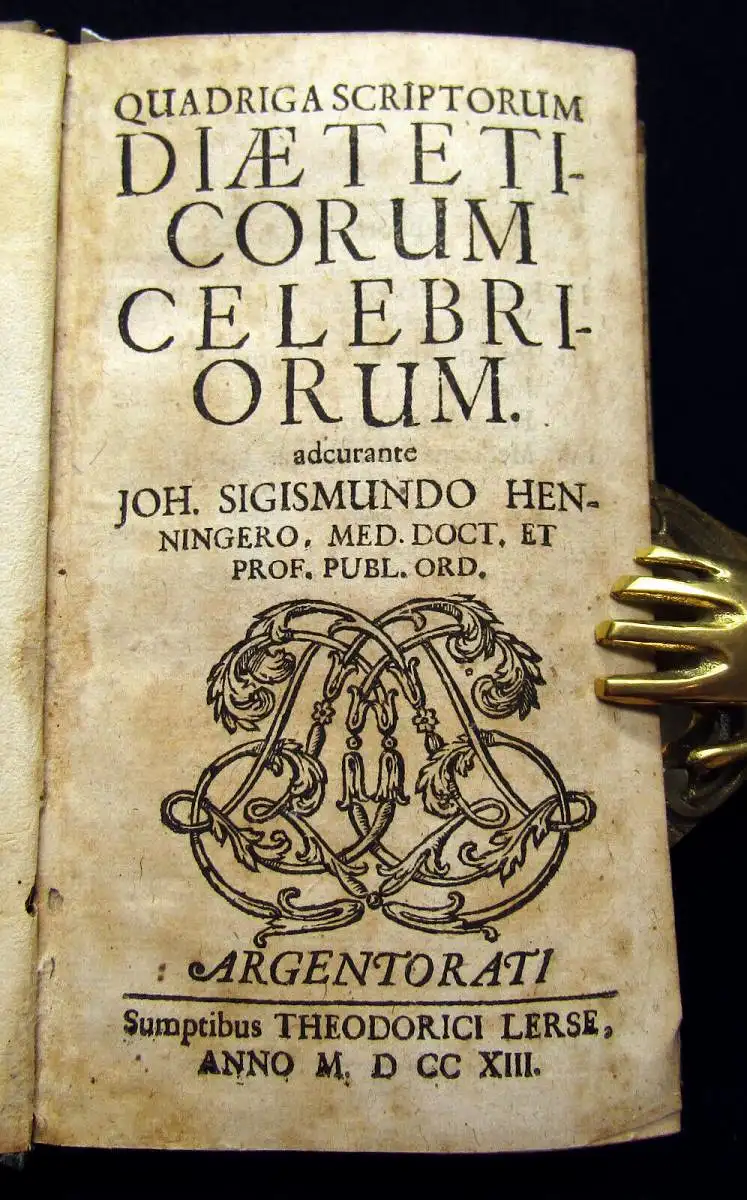 QUADRIGA SCRIPTORUM
DIÆTETI-
CORUM
CELEBRI-
ORUM.
adcurante
JOH. SIGISMUNDO HEN-
NINGERO, MED. DOCT. ET
PROF. PUBL. ORD.
ARGENTORATI
Sumptibus THEODORICI LERSE,
ANNO M. D CC XIII.